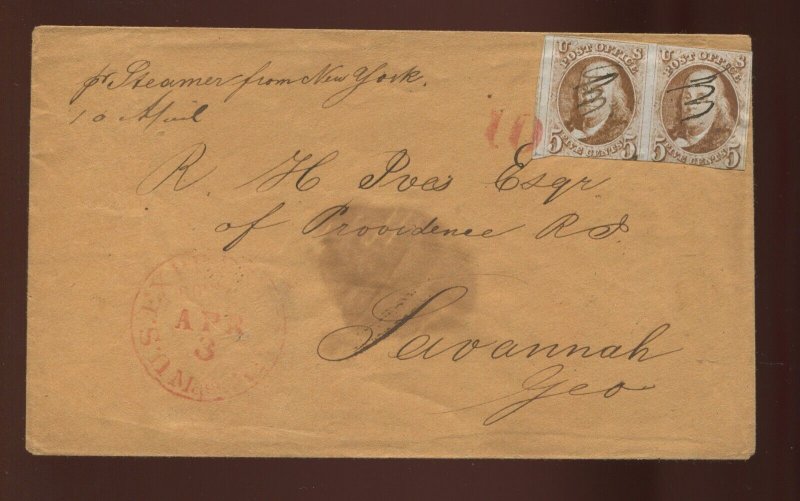 pr Steamer from New York.
10
U S
POST OFFICE
5 FIVE CENTS 5
U S
POST OFFICE
5 FIVE CENTS 5
R. H Ives Esqr
of Providence R I.
APR
3
Savannah
Geo